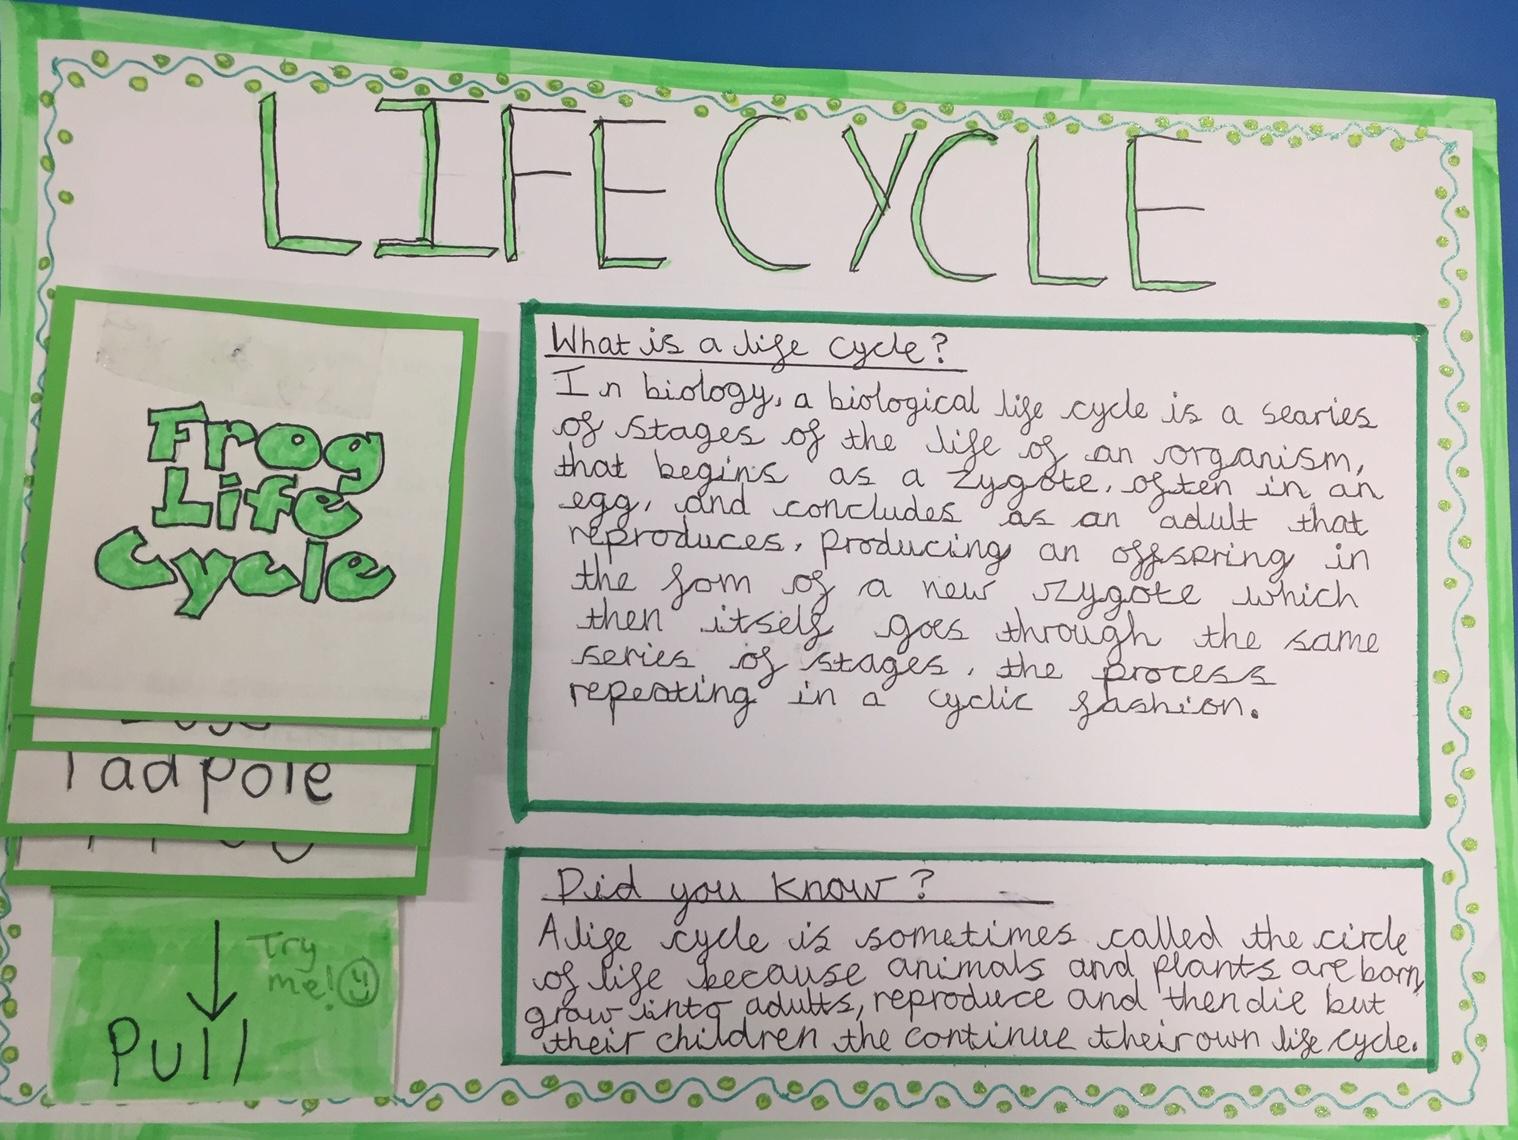 LIFE CYCLE
Frog
Life
Cycle
Tadpole
Try
me!
Pull
What is a life cycle?
In biology, a biological life cycle is a searies
of stages of the life of an organism,
that begins as a zygote, often in an
egg, and concludes as an adult that
reproduces, producing an offspring in
the fom of a new zygote which
then itself goes through the same
series of stages, the process
repeating in a cyclic fashion.
Did you know?
A life cycle is sometimes called the circle
of life because animals and plants are born,
grow into adults, reproduce and then die but
their children the continue their own life cycle.